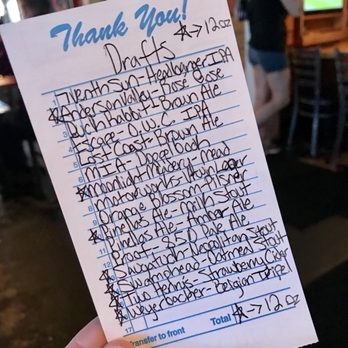 Thank You!
☆→12oz
Drafts
Seventh Sun - Headbanger IPA
☆ Anderson Valley - Rose Gose
Jackrabbit - Brown Ale
Escape - IPA
Lost Coast - Brown Ale
M.I.A - Doppelbock
☆ Moonlight Meadery - mead
Motorworks -
Orange Blossom - Pilsner
☆ Pinellas Ale - Milk Stout
Pinellas Ale - Amber Ale
Proof - 850 Pale Ale
☆ Saugatuck - Neapolitan Stout
☆ Swamphead - Oatmeal Stout
☆ Two Henrys - Strawberry Cider
☆ Weyerbacher - Belgian Tripel
17
Transfer to front
Total
☆→12oz